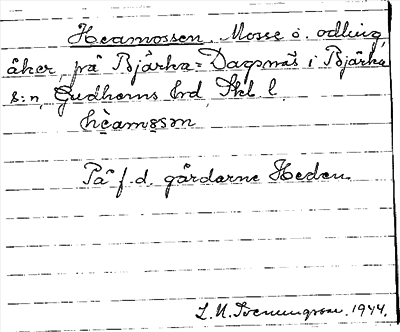 Heamossen. Mosse o. odling,
åker, på Bjärka=Dagsnäs i Bjärka
s:n, Gudhems hrd, Skl l.
hèamo̱sm
På f.d. gårdarne Heden.
1944.